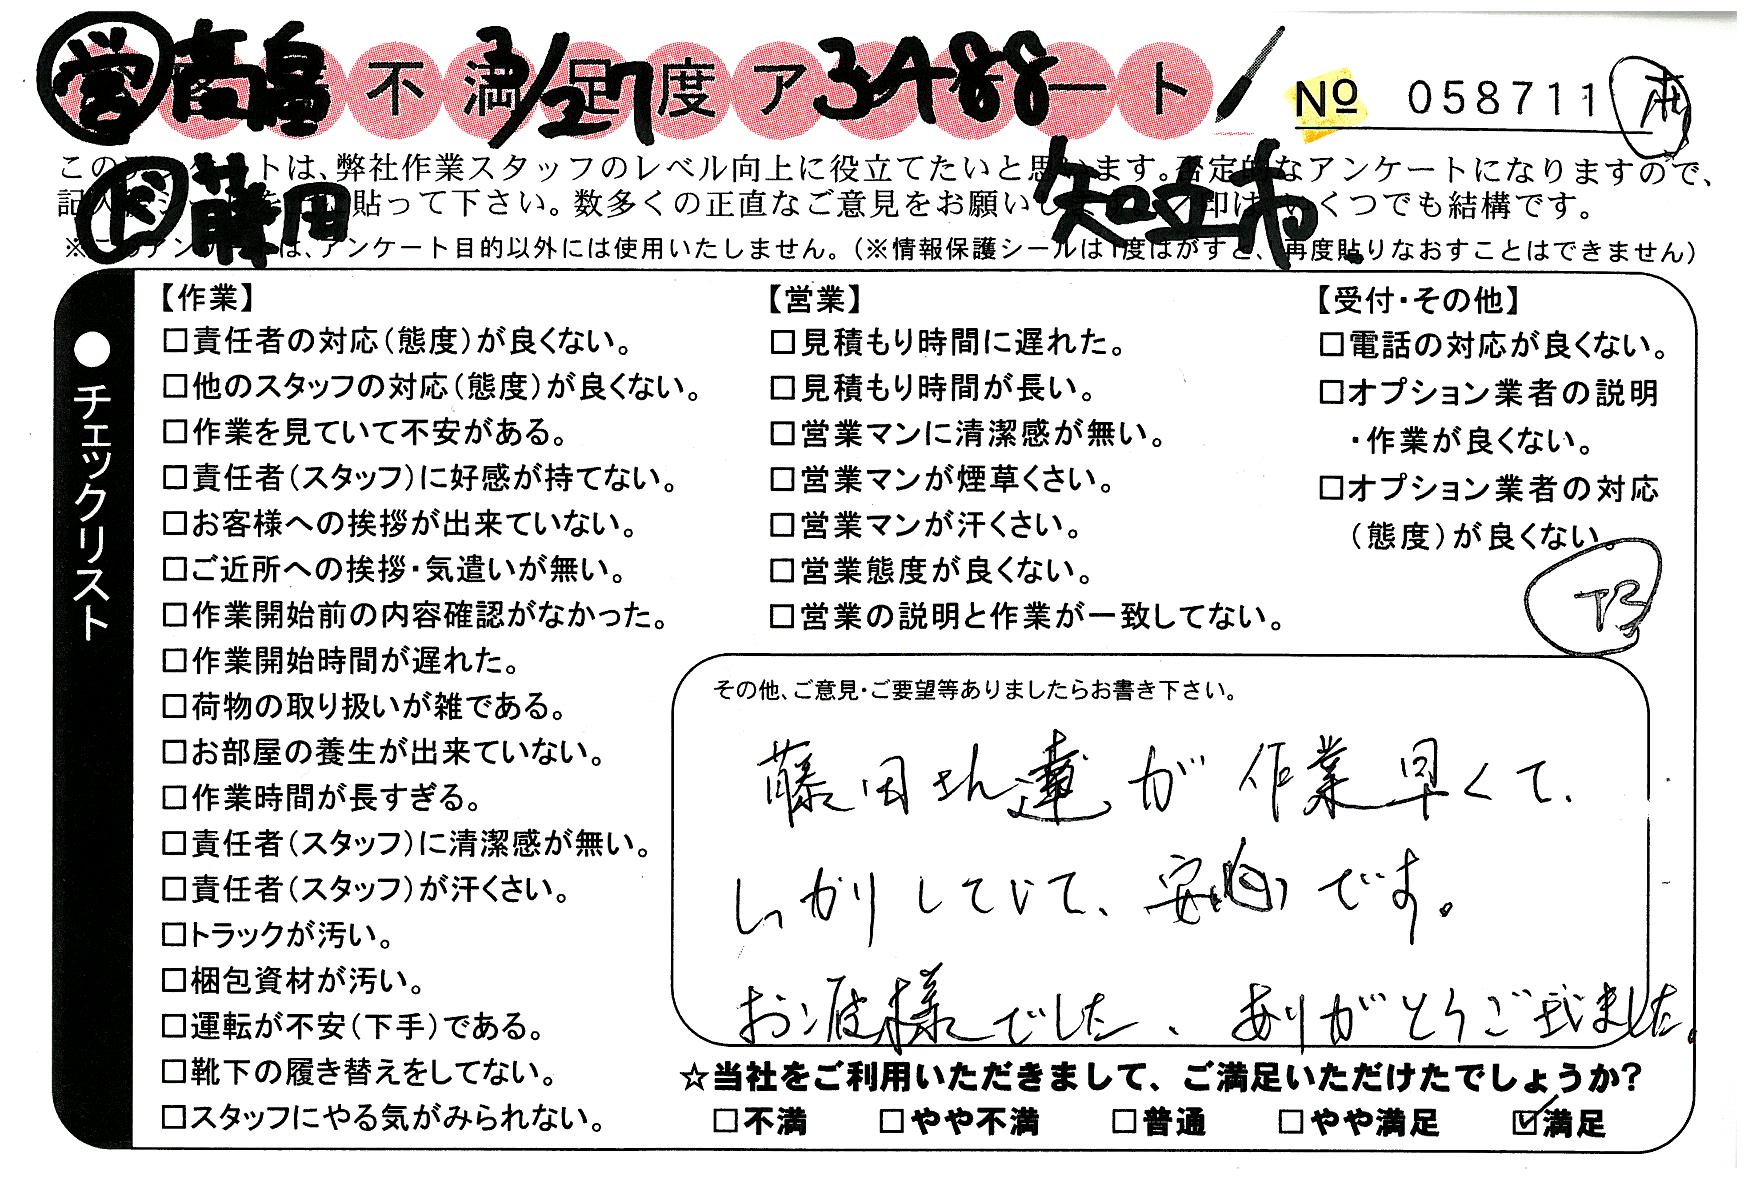 営 高畠 不満足度アンケート 3/27 3A88 No 058711
このアンケートは、弊社作業スタッフのレベル向上に役立てたいと思います。否定的なアンケートになりますので、
貼って下さい。数多くの正直なご意見をお願いし 印は いくつでも結構です。
ド 藤田 知立市
※このアンケートは、アンケート目的以外には使用いたしません。(※情報保護シールは1度はがすと、再度貼りなおすことはできません)
●チェックリスト
【作業】
□責任者の対応(態度)が良くない。
□他のスタッフの対応(態度)が良くない。
□作業を見ていて不安がある。
□責任者(スタッフ)に好感が持てない。
□お客様への挨拶が出来ていない。
□ご近所への挨拶・気遣いが無い。
□作業開始前の内容確認がなかった。
□作業開始時間が遅れた。
□荷物の取り扱いが雑である。
□お部屋の養生が出来ていない。
□作業時間が長すぎる。
□責任者(スタッフ)に清潔感が無い。
□責任者(スタッフ)が汗くさい。
□トラックが汚い。
□梱包資材が汚い。
□運転が不安(下手)である。
□靴下の履き替えをしてない。
□スタッフにやる気がみられない。
【営業】
□見積もり時間に遅れた。
□見積もり時間が長い。
□営業マンに清潔感が無い。
□営業マンが煙草くさい。
□営業マンが汗くさい。
□営業態度が良くない。
□営業の説明と作業が一致してない。
【受付・その他】
□電話の対応が良くない。
□オプション業者の説明
・作業が良くない。
□オプション業者の対応
(態度)が良くない。
その他、ご意見・ご要望等ありましたらお書き下さい。
藤田さん達が作業早くて、
しっかりしていて、安心です。
お疲様でした、ありがとうご武ました。
☆当社をご利用いただきまして、ご満足いただけたでしょうか?
□不満 □やや不満 □普通 □やや満足 ☑満足